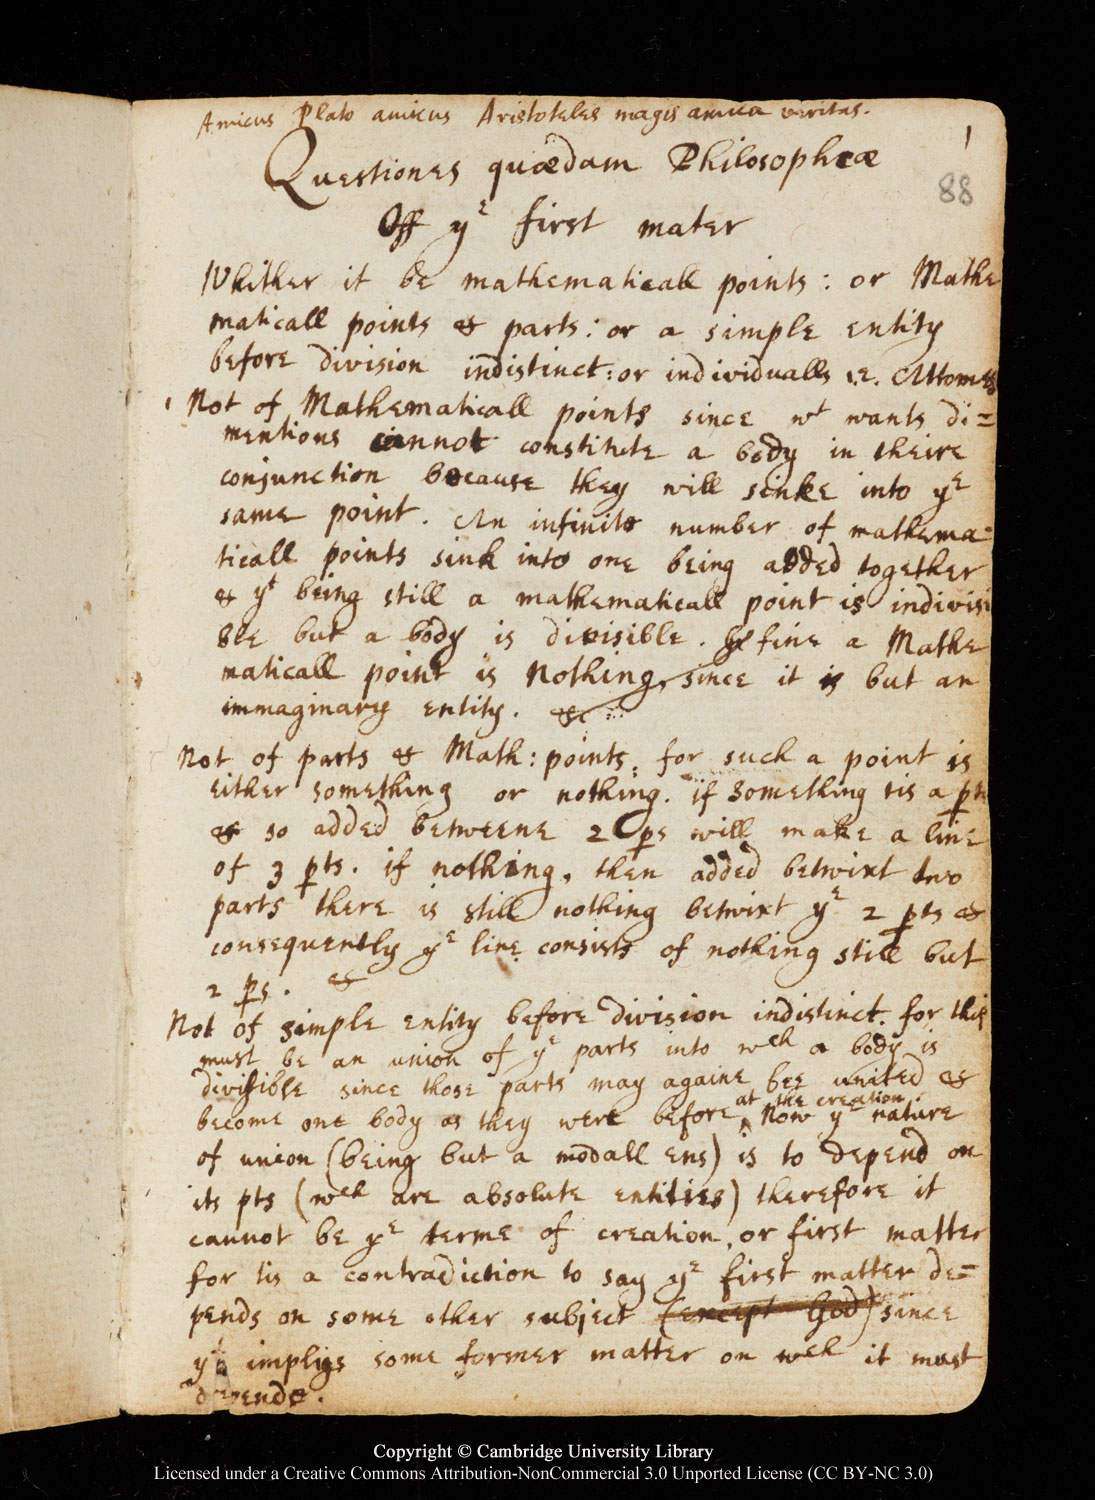 Amicus Plato amicus Aristoteles magis amica veritas.
1
88
Questiones quædam Philosophcæ
Off yᵉ first mater
Whither it be mathematicall points: or Mathe
maticall points & parts: or a simple entity
before division indistinct: or individualls i.e. Attomes
Not of Mathematicall points since wᵗ wants di=
mentions cannot constitute a body in theire
conjunction because they will sinke into yᵉ
same point. An infinite number of mathema=
ticall points sink into one being added together
& yᵗ being still a mathematicall point is indivisi
ble but a body is divisible. fine a Mathe
maticall point is Nothing, since it is but an
immaginary entity. &c
Not of parts & Math: points, for such a point is
either something or nothing. if something tis a pt
& so added betweene 2 ps will make a line
of 3 pts. if nothing, then added betwixt two
parts there is still nothing betwixt yᵉ 2 pts &
consequently yᵉ line consists of nothing still but
2 ps. &
Not of simple entity before division indistinct. for this
must be an union of yᵉ parts into wᶜʰ a body is
divisible since those parts may againe bee united &
become one body as they were before at the creation. Now yᵉ nature
of union (being but a modall ens) is to depend on
its pts (wᶜʰ are absolute entities) therefore it
cannot be yᵉ terme of creation, or first matter
for tis a contradiction to say yᵉ first matter de=
pends on some other subject (except God) since
yᵗ implys some former matter on wᶜʰ it must
depende.
Copyright © Cambridge University Library
Licensed under a Creative Commons Attribution-NonCommercial 3.0 Unported License (CC BY-NC 3.0)